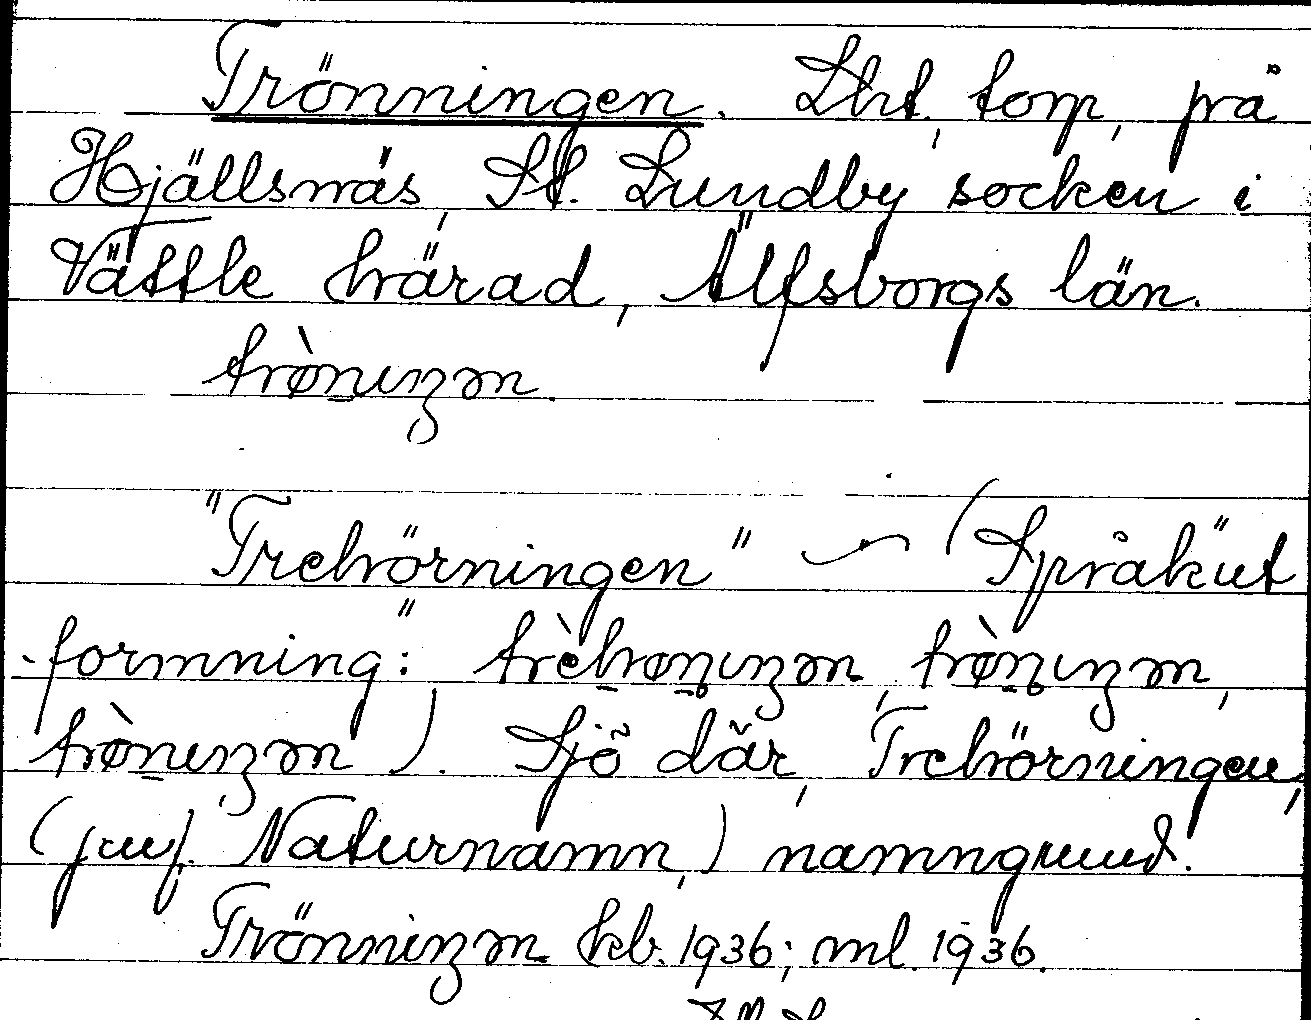 Trönningen. Lht, torp, på
Hjällsnäs, St. Lundby socken i
Vättle härad, Älfsborgs län.
trø̀nɩŋən.
"Trehörningen" ~ (Språkut
formning:" trèhøṇɩŋən, trø̀ṇɩŋən,
trø̀nɩŋən). Sjö där, Trehörningen,
(jmf. Naturnamn,) namngrund.
Trönnɩŋən kb. 1936; ml. 1936.